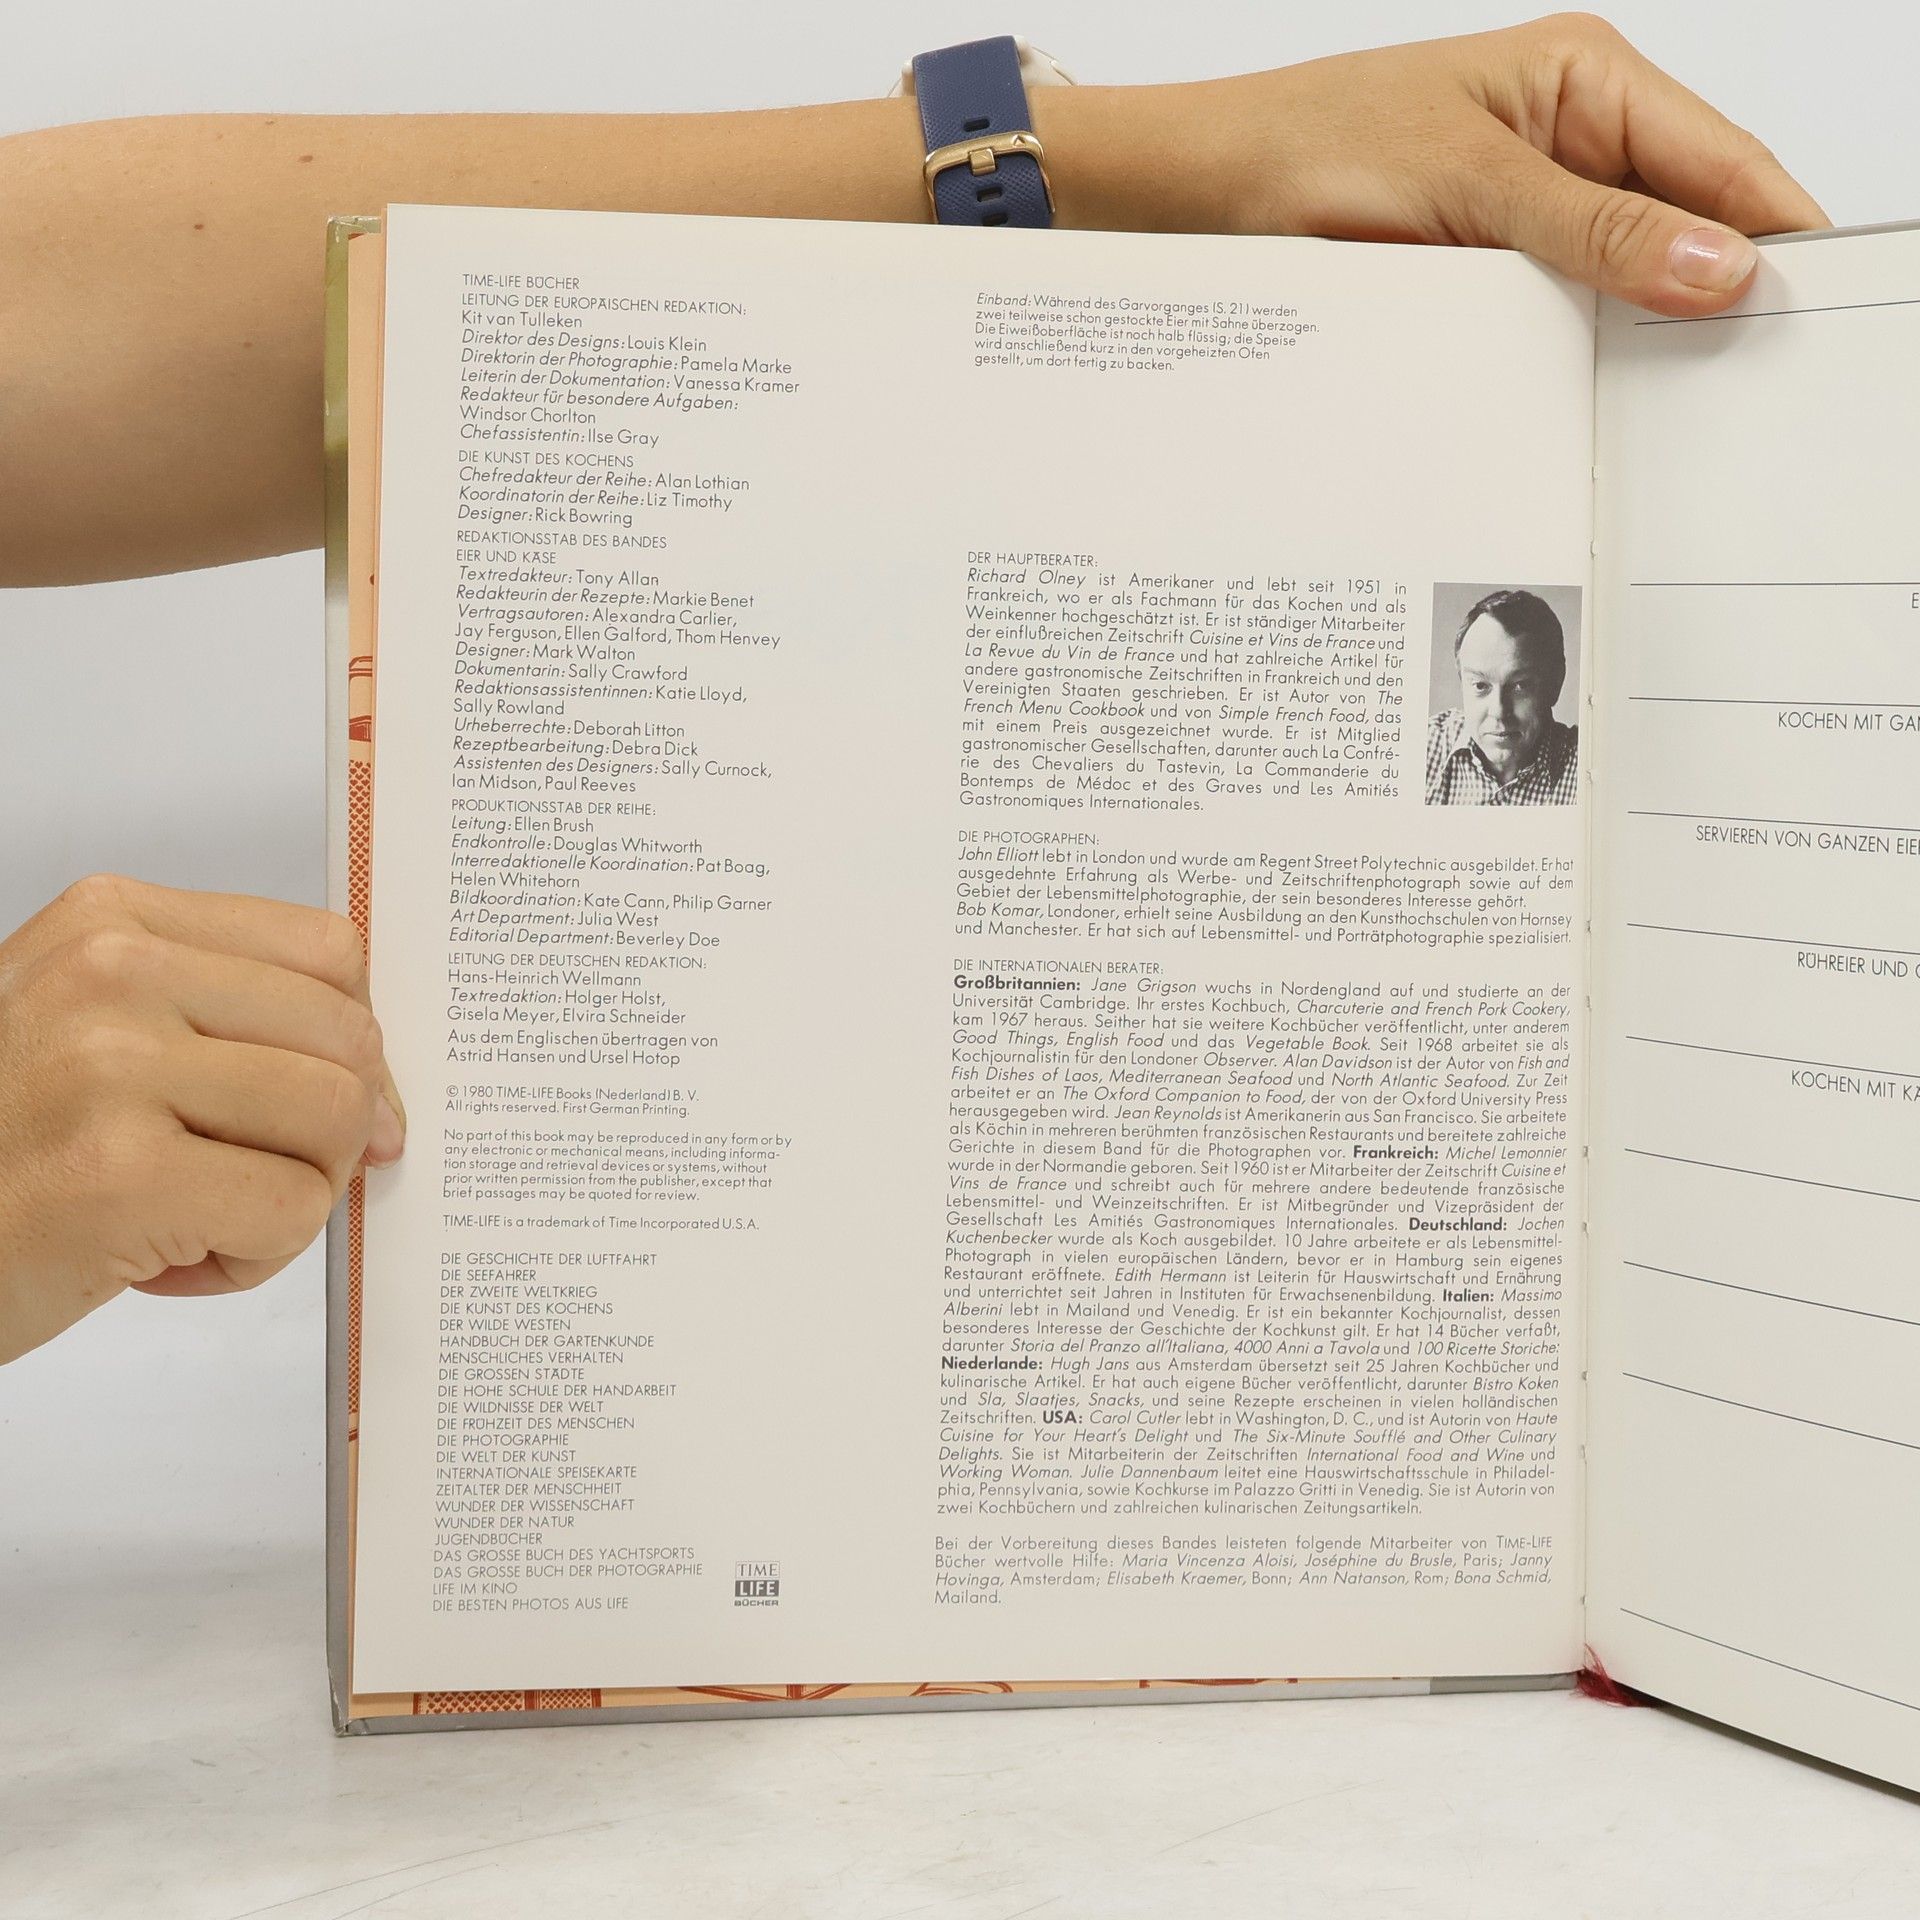 TIME-LIFE BÜCHER
LEITUNG DER EUROPÄISCHEN REDAKTION:
Kit van Tulleken
Direktor des Designs: Louis Klein
Direktorin der Photographie: Pamela Marke
Leiterin der Dokumentation: Vanessa Kramer
Redakteur für besondere Aufgaben:
Windsor Chorlton
Chefassistentin: Ilse Gray
DIE KUNST DES KOCHENS
Chefredakteur der Reihe: Alan Lothian
Koordinatorin der Reihe: Liz Timothy
Designer: Rick Bowring
REDAKTIONSSTAB DES BANDES
EIER UND KÄSE
Textredakteur: Tony Allan
Redakteurin der Rezepte: Markie Benet
Vertragsautoren: Alexandra Carlier,
Jay Ferguson, Ellen Galford, Thom Henvey
Designer: Mark Walton
Dokumentarin: Sally Crawford
Redaktionsassistentinnen: Katie Lloyd,
Sally Rowland
Urheberrechte: Deborah Litton
Rezeptbearbeitung: Debra Dick
Assistenten des Designers: Sally Curnock,
Ian Midson, Paul Reeves
PRODUKTIONSSTAB DER REIHE:
Leitung: Ellen Brush
Endkontrolle: Douglas Whitworth
Interredaktionelle Koordination: Pat Boag,
Helen Whitehorn
Bildkoordination: Kate Cann, Philip Garner
Art Department: Julia West
Editorial Department: Beverley Doe
LEITUNG DER DEUTSCHEN REDAKTION:
Hans-Heinrich Wellmann
Textredaktion: Holger Holst,
Gisela Meyer, Elvira Schneider
Aus dem Englischen übertragen von
Astrid Hansen und Ursel Hotop
© 1980 TIME-LIFE Books (Nederland) B. V.
All rights reserved. First German Printing.
No part of this book may be reproduced in any form or by
any electronic or mechanical means, including informa-
tion storage and retrieval devices or systems, without
prior written permission from the publisher, except that
brief passages may be quoted for review.
TIME-LIFE is a trademark of Time Incorporated U.S.A.
DIE GESCHICHTE DER LUFTFAHRT
DIE SEEFAHRER
DER ZWEITE WELTKRIEG
DIE KUNST DES KOCHENS
DER WILDE WESTEN
HANDBUCH DER GARTENKUNDE
MENSCHLICHES VERHALTEN
DIE GROSSEN STÄDTE
DIE HOHE SCHULE DER HANDARBEIT
DIE WILDNISSE DER WELT
DIE FRÜHZEIT DES MENSCHEN
DIE PHOTOGRAPHIE
DIE WELT DER KUNST
INTERNATIONALE SPEISEKARTE
ZEITALTER DER MENSCHHEIT
WUNDER DER WISSENSCHAFT
WUNDER DER NATUR
JUGENDBÜCHER
DAS GROSSE BUCH DES YACHTSPORTS
DAS GROSSE BUCH DER PHOTOGRAPHIE
LIFE IM KINO
DIE BESTEN PHOTOS AUS LIFE
TIME
LIFE
BÜCHER
Einband: Während des Garvorganges (S. 21) werden
zwei teilweise schon gestockte Eier mit Sahne überzogen.
Die Eiweißoberfläche ist noch halb flüssig; die Speise
wird anschließend kurz in den vorgeheizten Ofen
gestellt, um dort fertig zu backen.
DER HAUPTBERATER:
Richard Olney ist Amerikaner und lebt seit 1951 in
Frankreich, wo er als Fachmann für das Kochen und als
Weinkenner hochgeschätzt ist. Er ist ständiger Mitarbeiter
der einflußreichen Zeitschrift Cuisine et Vins de France und
La Revue du Vin de France und hat zahlreiche Artikel für
andere gastronomische Zeitschriften in Frankreich und den
Vereinigten Staaten geschrieben. Er ist Autor von The
French Menu Cookbook und von Simple French Food, das
mit einem Preis ausgezeichnet wurde. Er ist Mitglied
gastronomischer Gesellschaften, darunter auch La Confré-
rie des Chevaliers du Tastevin, La Commanderie du
Bontemps de Médoc et des Graves und Les Amitiés
Gastronomiques Internationales.
DIE PHOTOGRAPHEN:
John Elliott lebt in London und wurde am Regent Street Polytechnic ausgebildet. Er hat
ausgedehnte Erfahrung als Werbe- und Zeitschriftenphotograph sowie auf dem
Gebiet der Lebensmittelphotographie, der sein besonderes Interesse gehört.
Bob Komar, Londoner, erhielt seine Ausbildung an den Kunsthochschulen von Hornsey
und Manchester. Er hat sich auf Lebensmittel- und Porträtphotographie spezialisiert.
DIE INTERNATIONALEN BERATER:
Großbritannien: Jane Grigson wuchs in Nordengland auf und studierte an der
Universität Cambridge. Ihr erstes Kochbuch, Charcuterie and French Pork Cookery,
kam 1967 heraus. Seither hat sie weitere Kochbücher veröffentlicht, unter anderem
Good Things, English Food und das Vegetable Book. Seit 1968 arbeitet sie als
Kochjournalistin für den Londoner Observer. Alan Davidson ist der Autor von Fish and
Fish Dishes of Laos, Mediterranean Seafood und North Atlantic Seafood. Zur Zeit
arbeitet er an The Oxford Companion to Food, der von der Oxford University Press
herausgegeben wird. Jean Reynolds ist Amerikanerin aus San Francisco. Sie arbeitete
als Köchin in mehreren berühmten französischen Restaurants und bereitete zahlreiche
Gerichte in diesem Band für die Photographen vor. Frankreich: Michel Lemonnier
wurde in der Normandie geboren. Seit 1960 ist er Mitarbeiter der Zeitschrift Cuisine et
Vins de France und schreibt auch für mehrere andere bedeutende französische
Lebensmittel- und Weinzeitschriften. Er ist Mitbegründer und Vizepräsident der
Gesellschaft Les Amitiés Gastronomiques Internationales. Deutschland: Jochen
Kuchenbecker wurde als Koch ausgebildet. 10 Jahre arbeitete er als Lebensmittel-
Photograph in vielen europäischen Ländern, bevor er in Hamburg sein eigenes
Restaurant eröffnete. Edith Hermann ist Leiterin für Hauswirtschaft und Ernährung
und unterrichtet seit Jahren in Instituten für Erwachsenenbildung. Italien: Massimo
Alberini lebt in Mailand und Venedig. Er ist ein bekannter Kochjournalist, dessen
besonderes Interesse der Geschichte der Kochkunst gilt. Er hat 14 Bücher verfaßt,
darunter Storia del Pranzo all'Italiana, 4000 Anni a Tavola und 100 Ricette Storiche.
Niederlande: Hugh Jans aus Amsterdam übersetzt seit 25 Jahren Kochbücher und
kulinarische Artikel. Er hat auch eigene Bücher veröffentlicht, darunter Bistro Koken
und Sla, Slaatjes, Snacks, und seine Rezepte erscheinen in vielen holländischen
Zeitschriften. USA: Carol Cutler lebt in Washington, D. C., und ist Autorin von Haute
Cuisine for Your Heart's Delight und The Six-Minute Soufflé and Other Culinary
Delights. Sie ist Mitarbeiterin der Zeitschriften International Food and Wine und
Working Woman. Julie Dannenbaum leitet eine Hauswirtschaftsschule in Philadel-
phia, Pennsylvania, sowie Kochkurse im Palazzo Gritti in Venedig. Sie ist Autorin von
zwei Kochbüchern und zahlreichen kulinarischen Zeitungsartikeln.
Bei der Vorbereitung dieses Bandes leisteten folgende Mitarbeiter von TIME-LIFE
Bücher wertvolle Hilfe: Maria Vincenza Aloisi, Joséphine du Brusle, Paris; Janny
Hovinga, Amsterdam; Elisabeth Kraemer, Bonn; Ann Natanson, Rom; Bona Schmid,
Mailand.
KOCHEN MIT
SERVIEREN VON GANZEN
RÜHREIER UND
KOCHEN MIT